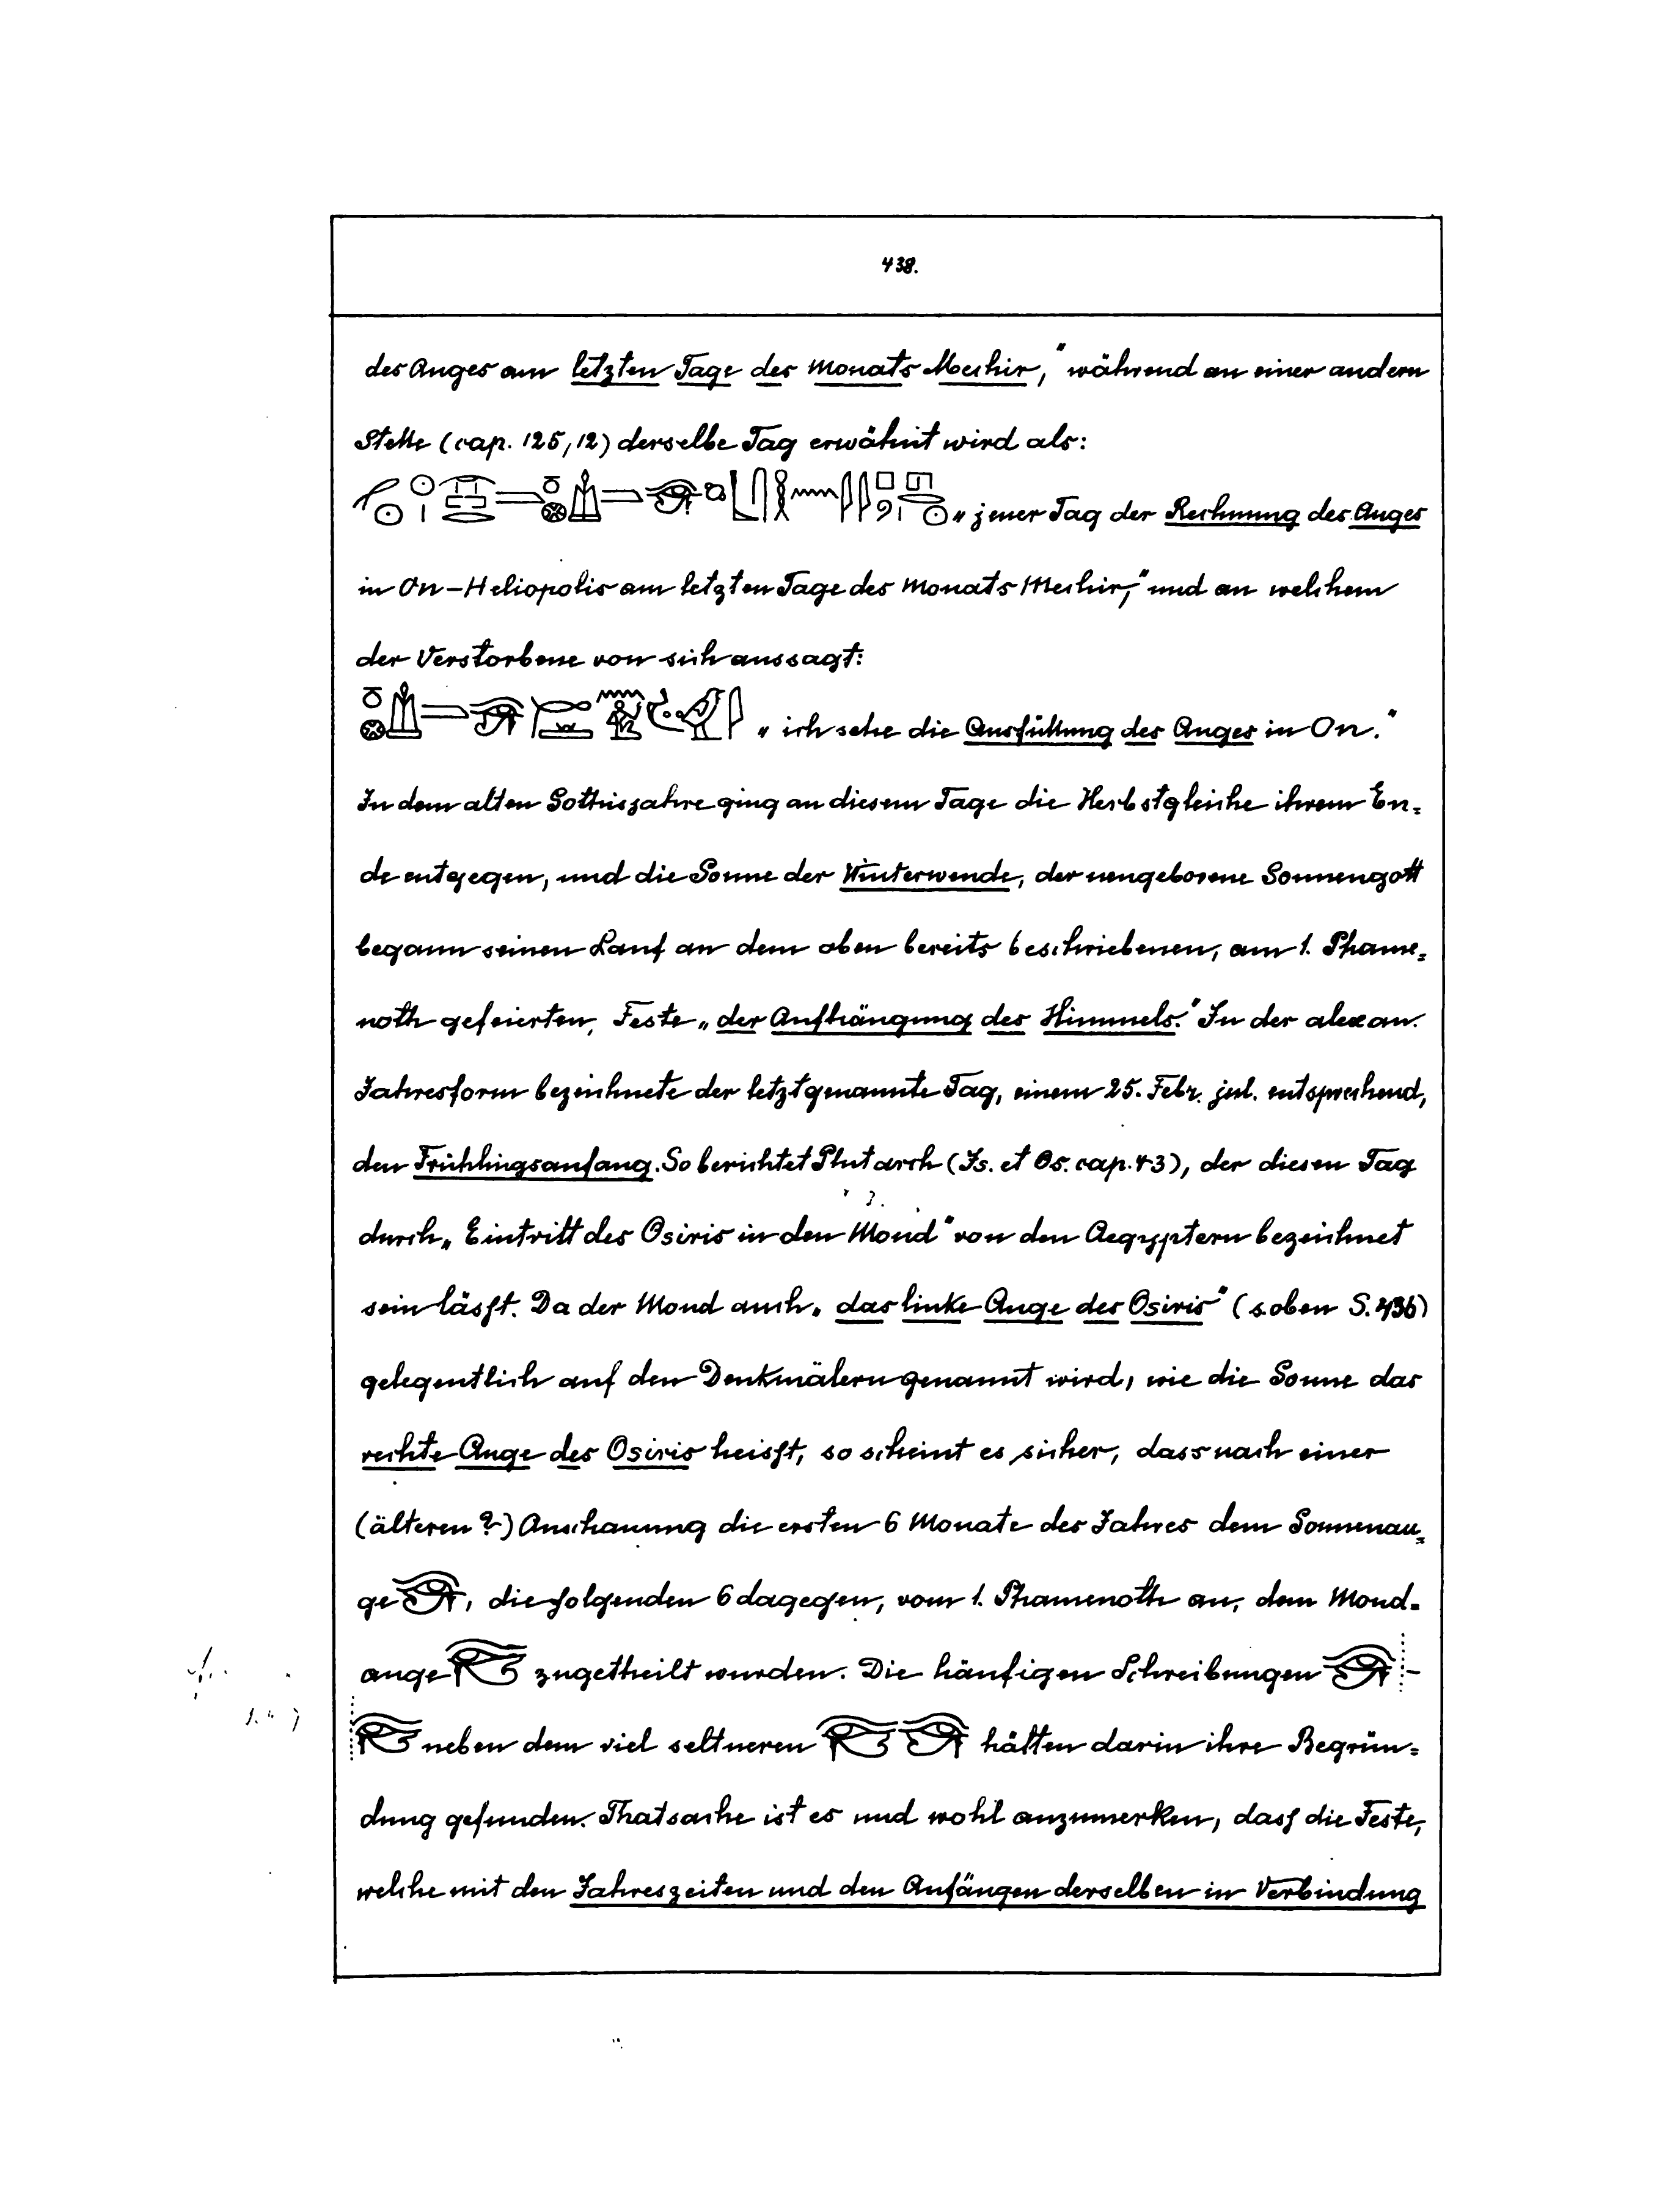 438.
des Auges am letzten Tage des Monats Mechir," während an einer andern
Stelle (cap. 125,12) derselbe Tag erwähnt wird als:
„jener Tag der Rechnung des Auges
in On-Heliopolis am letzten Tage des Monats Mechir," und an welchem
der Verstorbene von sich aussagt:
„ich sehe die Ausfüllung des Auges in On."
In dem alten Sothisjahre ging an diesem Tage die Herbstgleiche ihrem En=
de entgegen, und die Sonne der Winterwende, der neugeborene Sonnengott
begann seinen Lauf an dem oben bereits beschriebenen, am 1. Phame=
noth gefeierten, Feste „der Aufhängung des Himmels." In der alexan.
Jahresform bezeichnete der letztgenannte Tag, einem 25. Febr. jul. entsprechend,
den Frühlingsanfang. So berichtet Plutarch (Is. et Os. cap. 43), der diesen Tag
durch „Eintritt des Osiris in den Mond" von den Aegyptern bezeichnet
sein läſst. Da der Mond auch „das linke Auge des Osiris" (s. oben S. 436)
gelegentlich auf den Denkmälern genannt wird, wie die Sonne das
rechte Auge des Osiris heiſst, so scheint es sicher, dass nach einer
(älteren?) Anschauung die ersten 6 Monate des Jahres dem Sonnenau=
ge 𓂀, die folgenden 6 dagegen, vom 1. Phamenoth an, dem Mond-
auge zugetheilt wurden. Die häufigen Schreibungen 𓂀 -
neben dem viel seltneren 𓂀 hätten darin ihre Begrün=
dung gefunden. Thatsache ist es und wohl anzumerken, daſs die Feste,
welche mit den Jahreszeiten und den Anfängen derselben in Verbindung